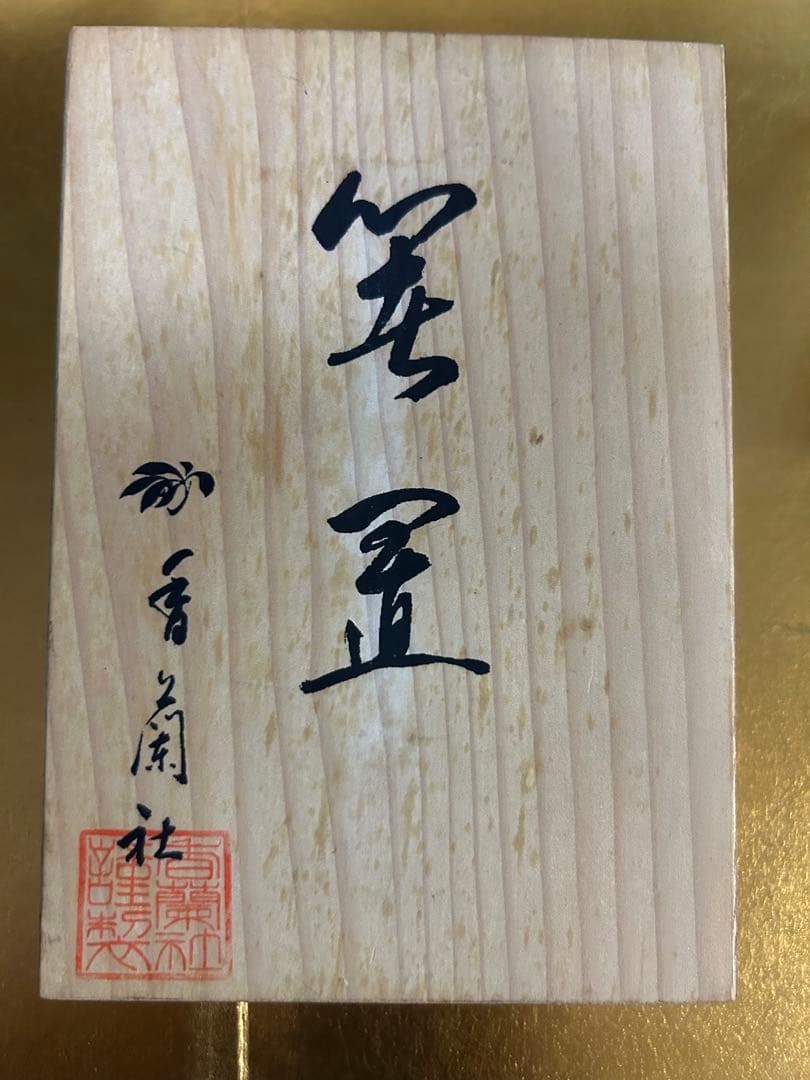 箸置
香蘭社
香蘭社
謹製